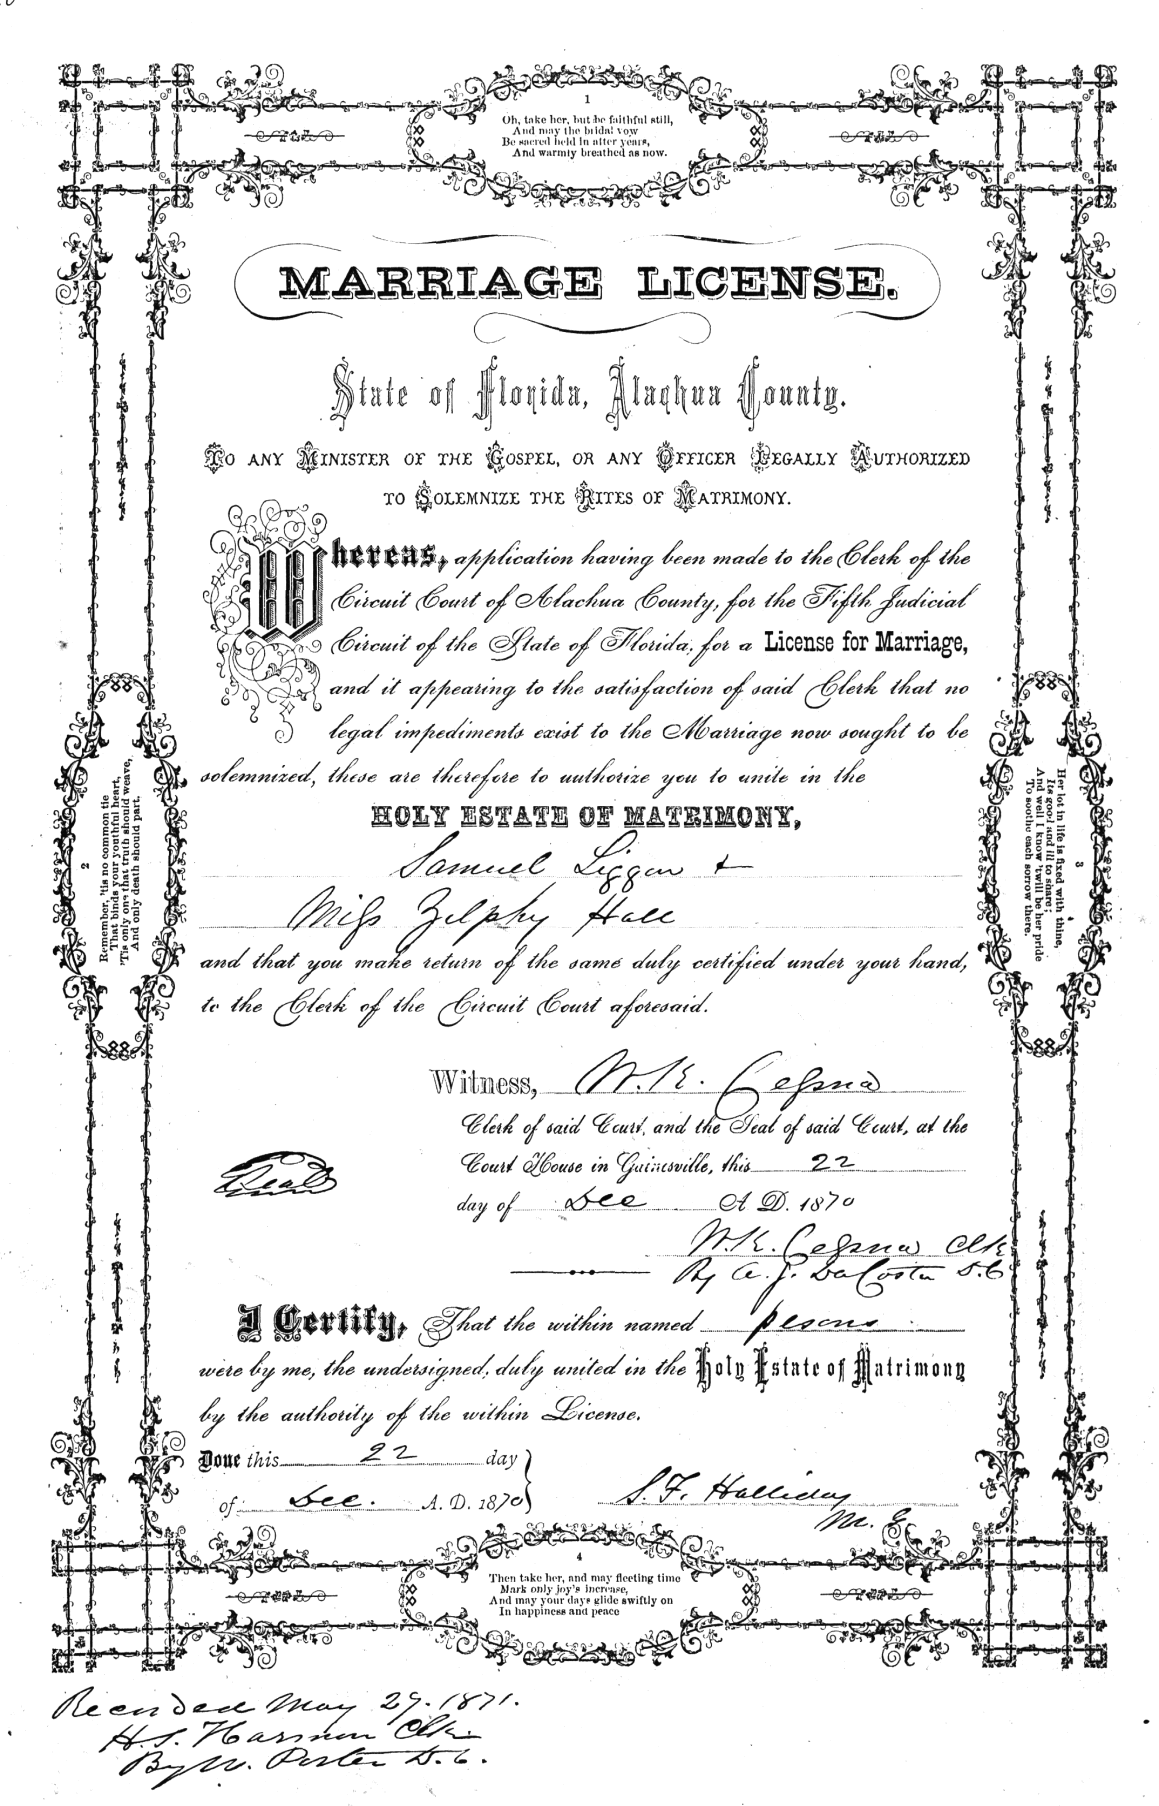 1
Oh, take her, but be faithful still,
And may the bridal vow
Be sacred held in after years,
And warmly breathed as now.
MARRIAGE LICENSE.
State of Florida, Alachua County.
TO ANY MINISTER OF THE GOSPEL, OR ANY OFFICER LEGALLY AUTHORIZED
TO SOLEMNIZE THE RITES OF MATRIMONY.
Whereas, application having been made to the Clerk of the
Circuit Court of Alachua County, for the Fifth Judicial
Circuit of the State of Florida, for a License for Marriage,
and it appearing to the satisfaction of said Clerk that no
legal impediments exist to the Marriage now sought to be
solemnized, these are therefore to authorize you to unite in the
HOLY ESTATE OF MATRIMONY,
Samuel Liggon &
Miss Zilphy Hall
and that you make return of the same duly certified under your hand,
to the Clerk of the Circuit Court aforesaid.
2
Remember, 'tis no common tie
That binds your youthful heart,
'Tis only one that truth should weave,
And only death should part.
3
Her lot in life is fixed with thine,
Its good and ill to share;
And well I know 'twill be her pride
To soothe each sorrow there.
Witness, W. K. Cessna
Clerk of said Court, and the Seal of said Court, at the
Court House in Gainesville, this 22
day of Dec A. D. 1870
Seal
W. K. Cessna Clk
By A. J. DaCosta D. C
I Certify, That the within named pesons
were by me, the undersigned, duly united in the Holy Estate of Matrimony
by the authority of the within License.
Done this 22 day
of Dec. A. D. 1870
S. F. Halliday
M. G
4
Then take her, and may fleeting time
Mark only joy's increase,
And may your days glide swiftly on
In happiness and peace
Recorded May 29. 1871.
H. S. Harmon Clk
By W. Porter D. C.